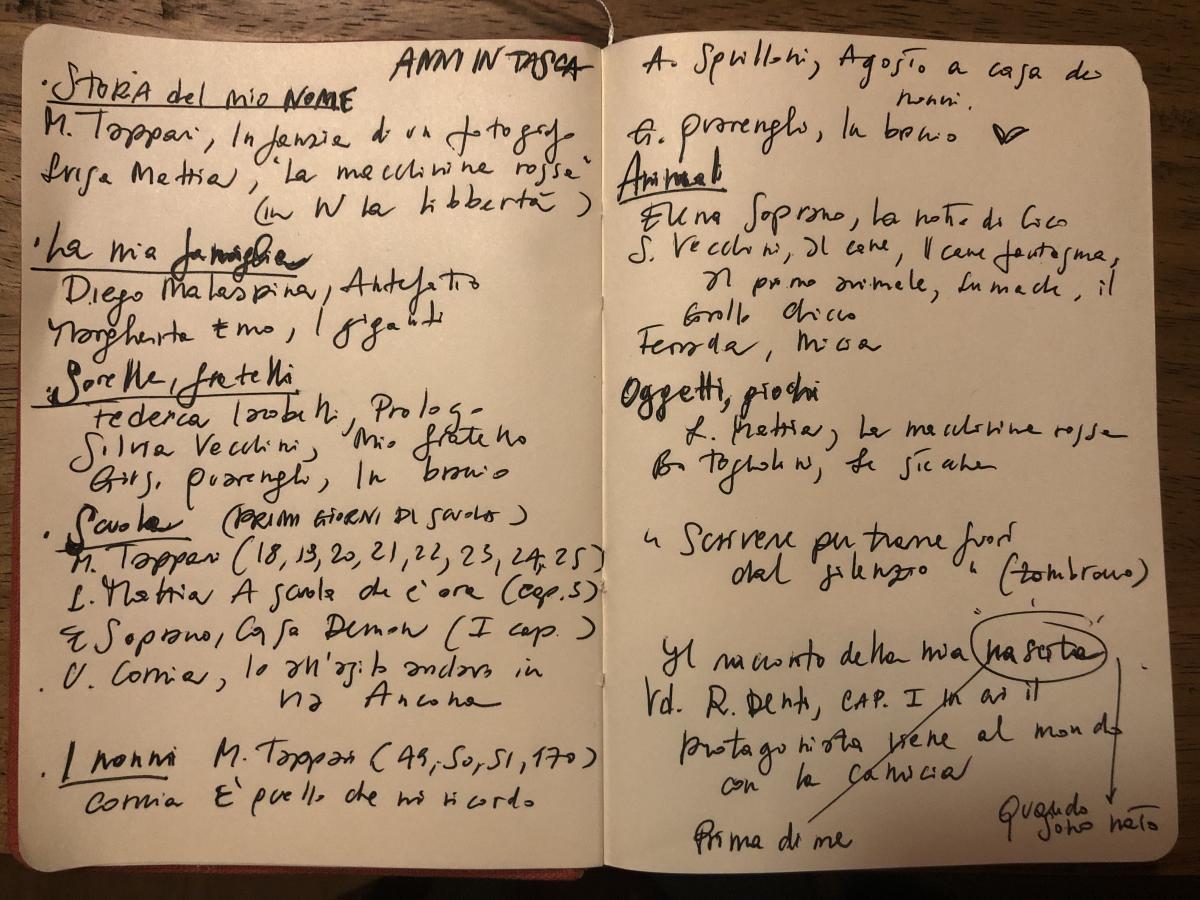 ANNI IN TASCA
· STORIA del mio NOME
M. Tappari, Infanzia di un fotografo
Luisa Mattia, "La macchinina rossa"
(in W la libbertà)
· La mia famiglia
Diego Malaspina, Antefatto
Margherita Emo, I giganti
· Sorelle, fratelli
Federica Iacobelli, Prologo
Silvia Vecchini, Mio fratello
Gius. Quarenghi, In braccio
· Scuola (PRIMI GIORNI DI SCUOLA)
M. Tappari (18, 19, 20, 21, 22, 23, 24, 25)
L. Mattia A scuola che è ora (cap. 5)
E Soprano, Casa Demon (I cap.)
· U. Cornia, Io all'asilo andavo in
via Ancona
· I nonni M. Tappari (49, 50, 51, 170)
Cornia È quello che mi ricordo
A. Spilloni, Agosto a casa dei
nonni.
G. Quarenghi, In braccio ♥
Animali
Elena Soprano, La notte di Cico
S. Vecchini, Il cane, Il cane fantasma,
Il primo animale, Lumache, il
Grillo Chicco
Ferrada, Micia
Oggetti, giochi
L. Mattia, La macchinina rossa
B. Tognolini,
" Scrivere per trarre fuori
dal silenzio " (Zambrano)
Il racconto della mia nascita
Vd. R. Denti, CAP. I in cui il
protagonista viene al mondo
con la camicia
Prima di me
Quando
sono nato